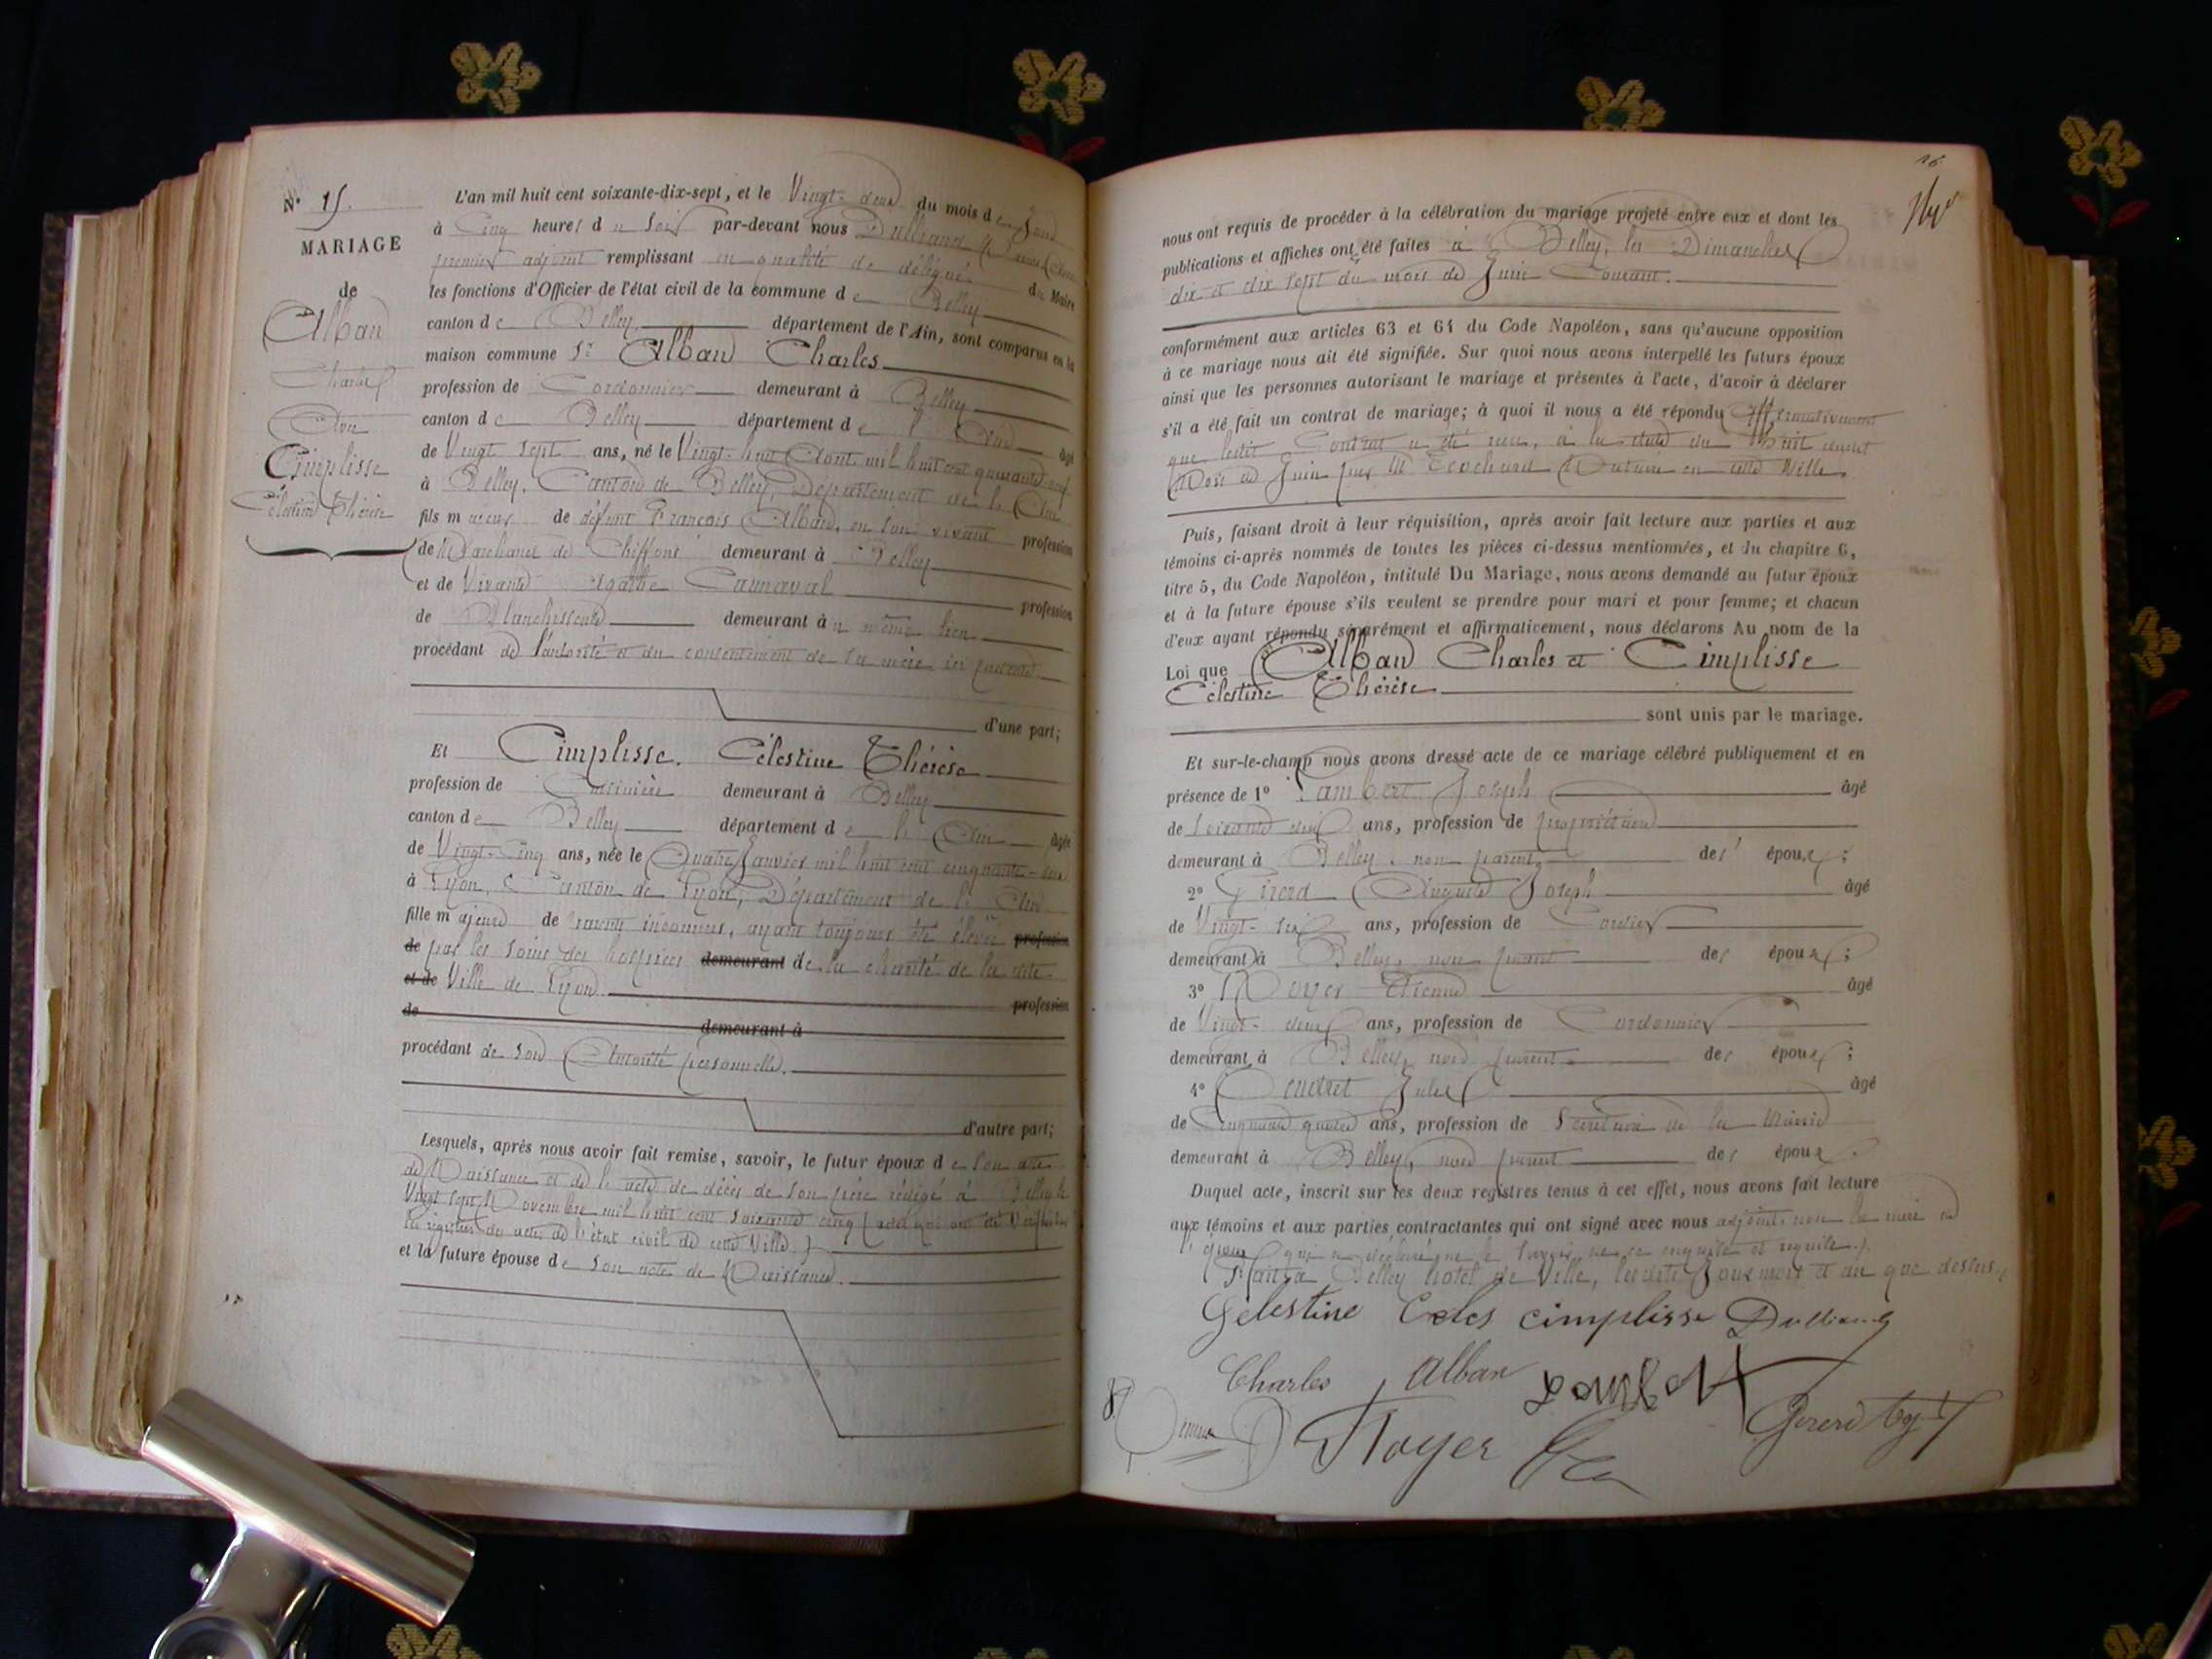 N° 15.
MARIAGE
de
Alban
Charles
Avec
Cimplisse
Célestine Thérèse
L'an mil huit cent soixante-dix-sept, et le Vingt-deux du mois de Juin
à Cinq heures du Soir par-devant nous Dulliand
premier adjoint remplissant en qualité de délégué du Maire
les fonctions d'Officier de l'état civil de la commune de Belley
canton de Belley département de l'Ain, sont comparus en la
maison commune Sr Alban Charles
profession de Cordonnier demeurant à Belley
canton de Belley département de l'Ain âgé
de Vingt sept ans, né le Vingt-huit Août mil huit cent quarante-neuf
à Belley, Canton de Belley, Département de l'Ain
fils majeur de défunt François Alban, en son vivant profession
de Marchand de Chiffons demeurant à Belley
et de Vivante Agathe Carnaval profession
de Blanchisseuse demeurant au même lieu
procédant de l'autorité et du consentement de sa mère ici présente
d'une part;
Et Cimplisse. Célestine Thérèse
profession de Cuisinière demeurant à Belley
canton de Belley département de l'Ain âgée
de Vingt-Cinq ans, née le Quatre Janvier mil huit cent cinquante-deux
à Lyon, Canton de Lyon, Département de l'Ain
fille majeure de parents inconnus, ayant toujours été élevée profession
de par les soins des hospices demeurant de la charité de la dite
et de Ville de Lyon profession
de demeurant à
procédant de son Autorité personnelle.
d'autre part;
Lesquels, après nous avoir fait remise, savoir, le futur époux de son acte
de Naissance et de l'acte de décès de son père rédigé à Belley le
Vingt sept Novembre mil huit cent soixante cinq
les registres des actes de l'état civil de cette Ville)
et la future épouse de son acte de Naissance.
16.
nous ont requis de procéder à la célébration du mariage projeté entre eux et dont les
publications et affiches ont été faites à Belley, les Dimanches
dix et dix sept du mois de Juin Courant.
conformément aux articles 63 et 64 du Code Napoléon, sans qu'aucune opposition
à ce mariage nous ait été signifiée. Sur quoi nous avons interpellé les futurs époux
ainsi que les personnes autorisant le mariage et présentes à l'acte, d'avoir à déclarer
s'il a été fait un contrat de mariage; à quoi il nous a été répondu Affirmativement
que ledit Contrat a été reçu, à la date du Huit dudit
Mois de Juin par Me Trochard Notaire en cette Ville.
Puis, faisant droit à leur réquisition, après avoir fait lecture aux parties et aux
témoins ci-après nommés de toutes les pièces ci-dessus mentionnées, et du chapitre 6,
titre 5, du Code Napoléon, intitulé Du Mariage, nous avons demandé au futur époux
et à la future épouse s'ils veulent se prendre pour mari et pour femme; et chacun
d'eux ayant répondu séparément et affirmativement, nous déclarons Au nom de la
Loi que Alban Charles et Cimplisse
Célestine Thérèse
sont unis par le mariage.
Et sur-le-champ nous avons dressé acte de ce mariage célébré publiquement et en
présence de 1° Lambert Joseph âgé
de Soixante deux ans, profession de propriétaire
demeurant à Belley, non parent des époux;
2° Girerd Auguste Joseph âgé
de Vingt-six ans, profession de Cordier
demeurant à Belley, non parent des époux;
3° Royer Etienne âgé
de Vingt-deux ans, profession de Cordonnier
demeurant à Belley, non parent des époux;
4° Jules âgé
de Cinquante quatre ans, profession de Secrétaire de la Mairie
demeurant à Belley, non parent des époux.
Duquel acte, inscrit sur les deux registres tenus à cet effet, nous avons fait lecture
aux témoins et aux parties contractantes qui ont signé avec nous adjoint, non la mère de
l'époux qui a déclaré ne le savoir, de ce enquise et requise.
Fait à Belley hotel de Ville, lesdits Jour mois et an que dessus.
Célestine cimplisse Dulliand
Charles Alban Lambert
Royer Girerd